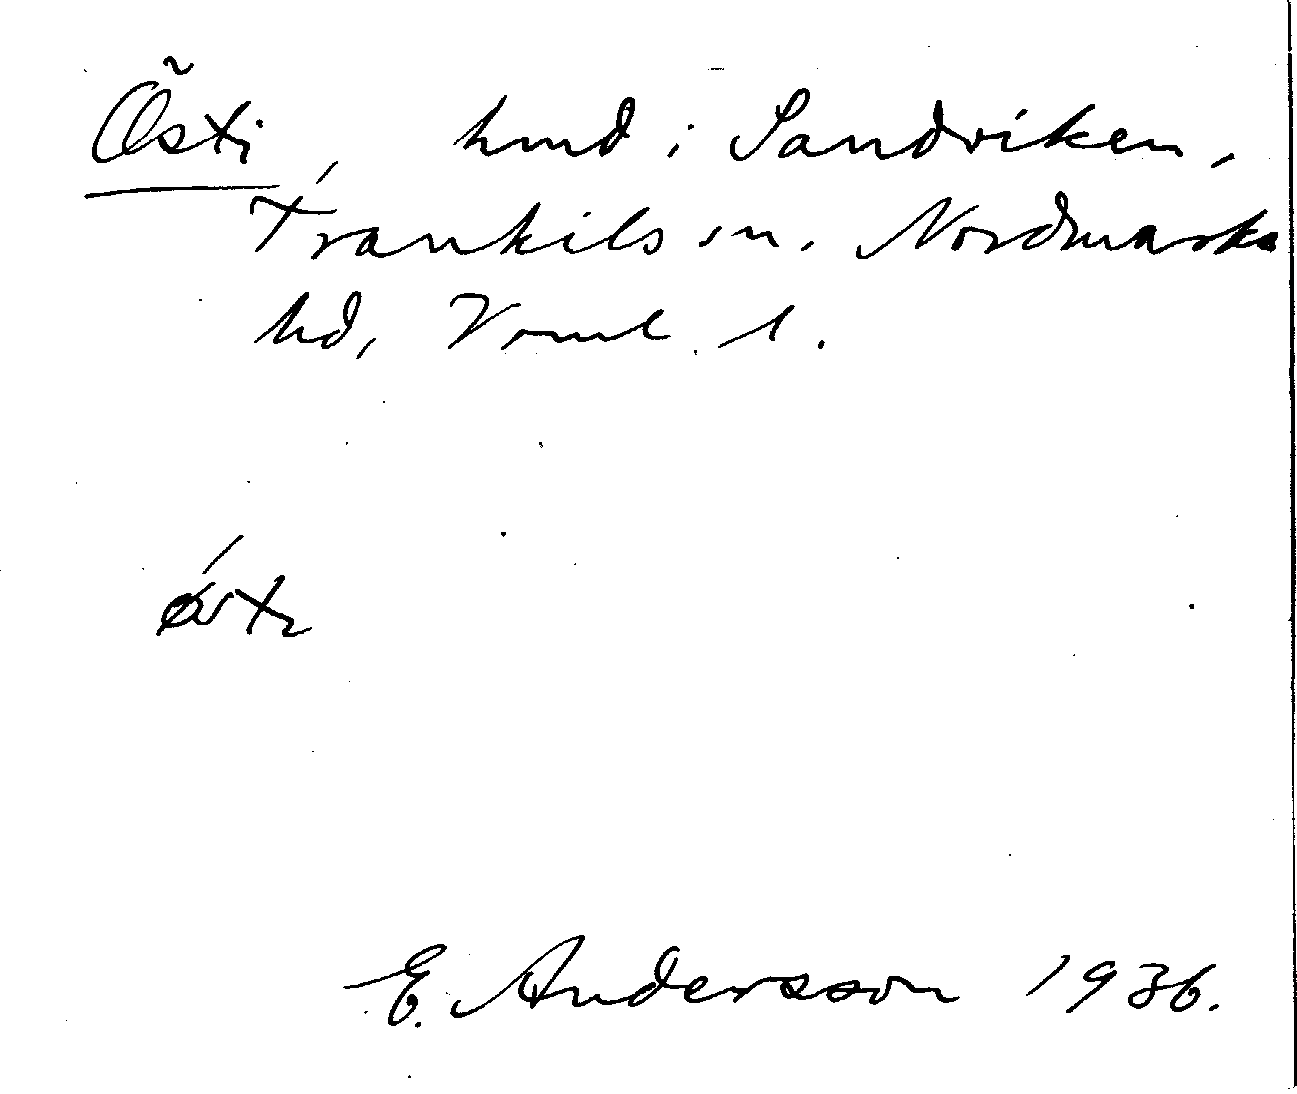 Östi, hmd i Sandviken,
Trankils sn. Nordmarks
hd, Vrml. l.
E. Andersson 1936.